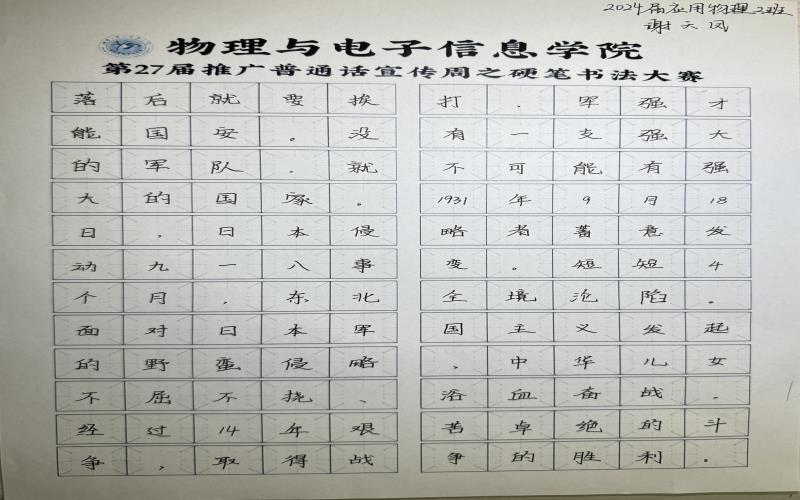 2024届应用物理2班
谢天凤
物理与电子信息学院
第27届推广普通话宣传周之硬笔书法大赛
落后就要挨打,军强才
能国安。没有一支强大
的军队,就不可能有强
大的国家。1931年9月18
日,日本侵略者蓄意发
动九一八事变。短短4
个月,东北全境沦陷。
面对日本军国主义发起
的野蛮侵略,中华儿女
不屈不挠、浴血奋战,
经过14年艰苦卓绝的斗
争,取得战争的胜利。